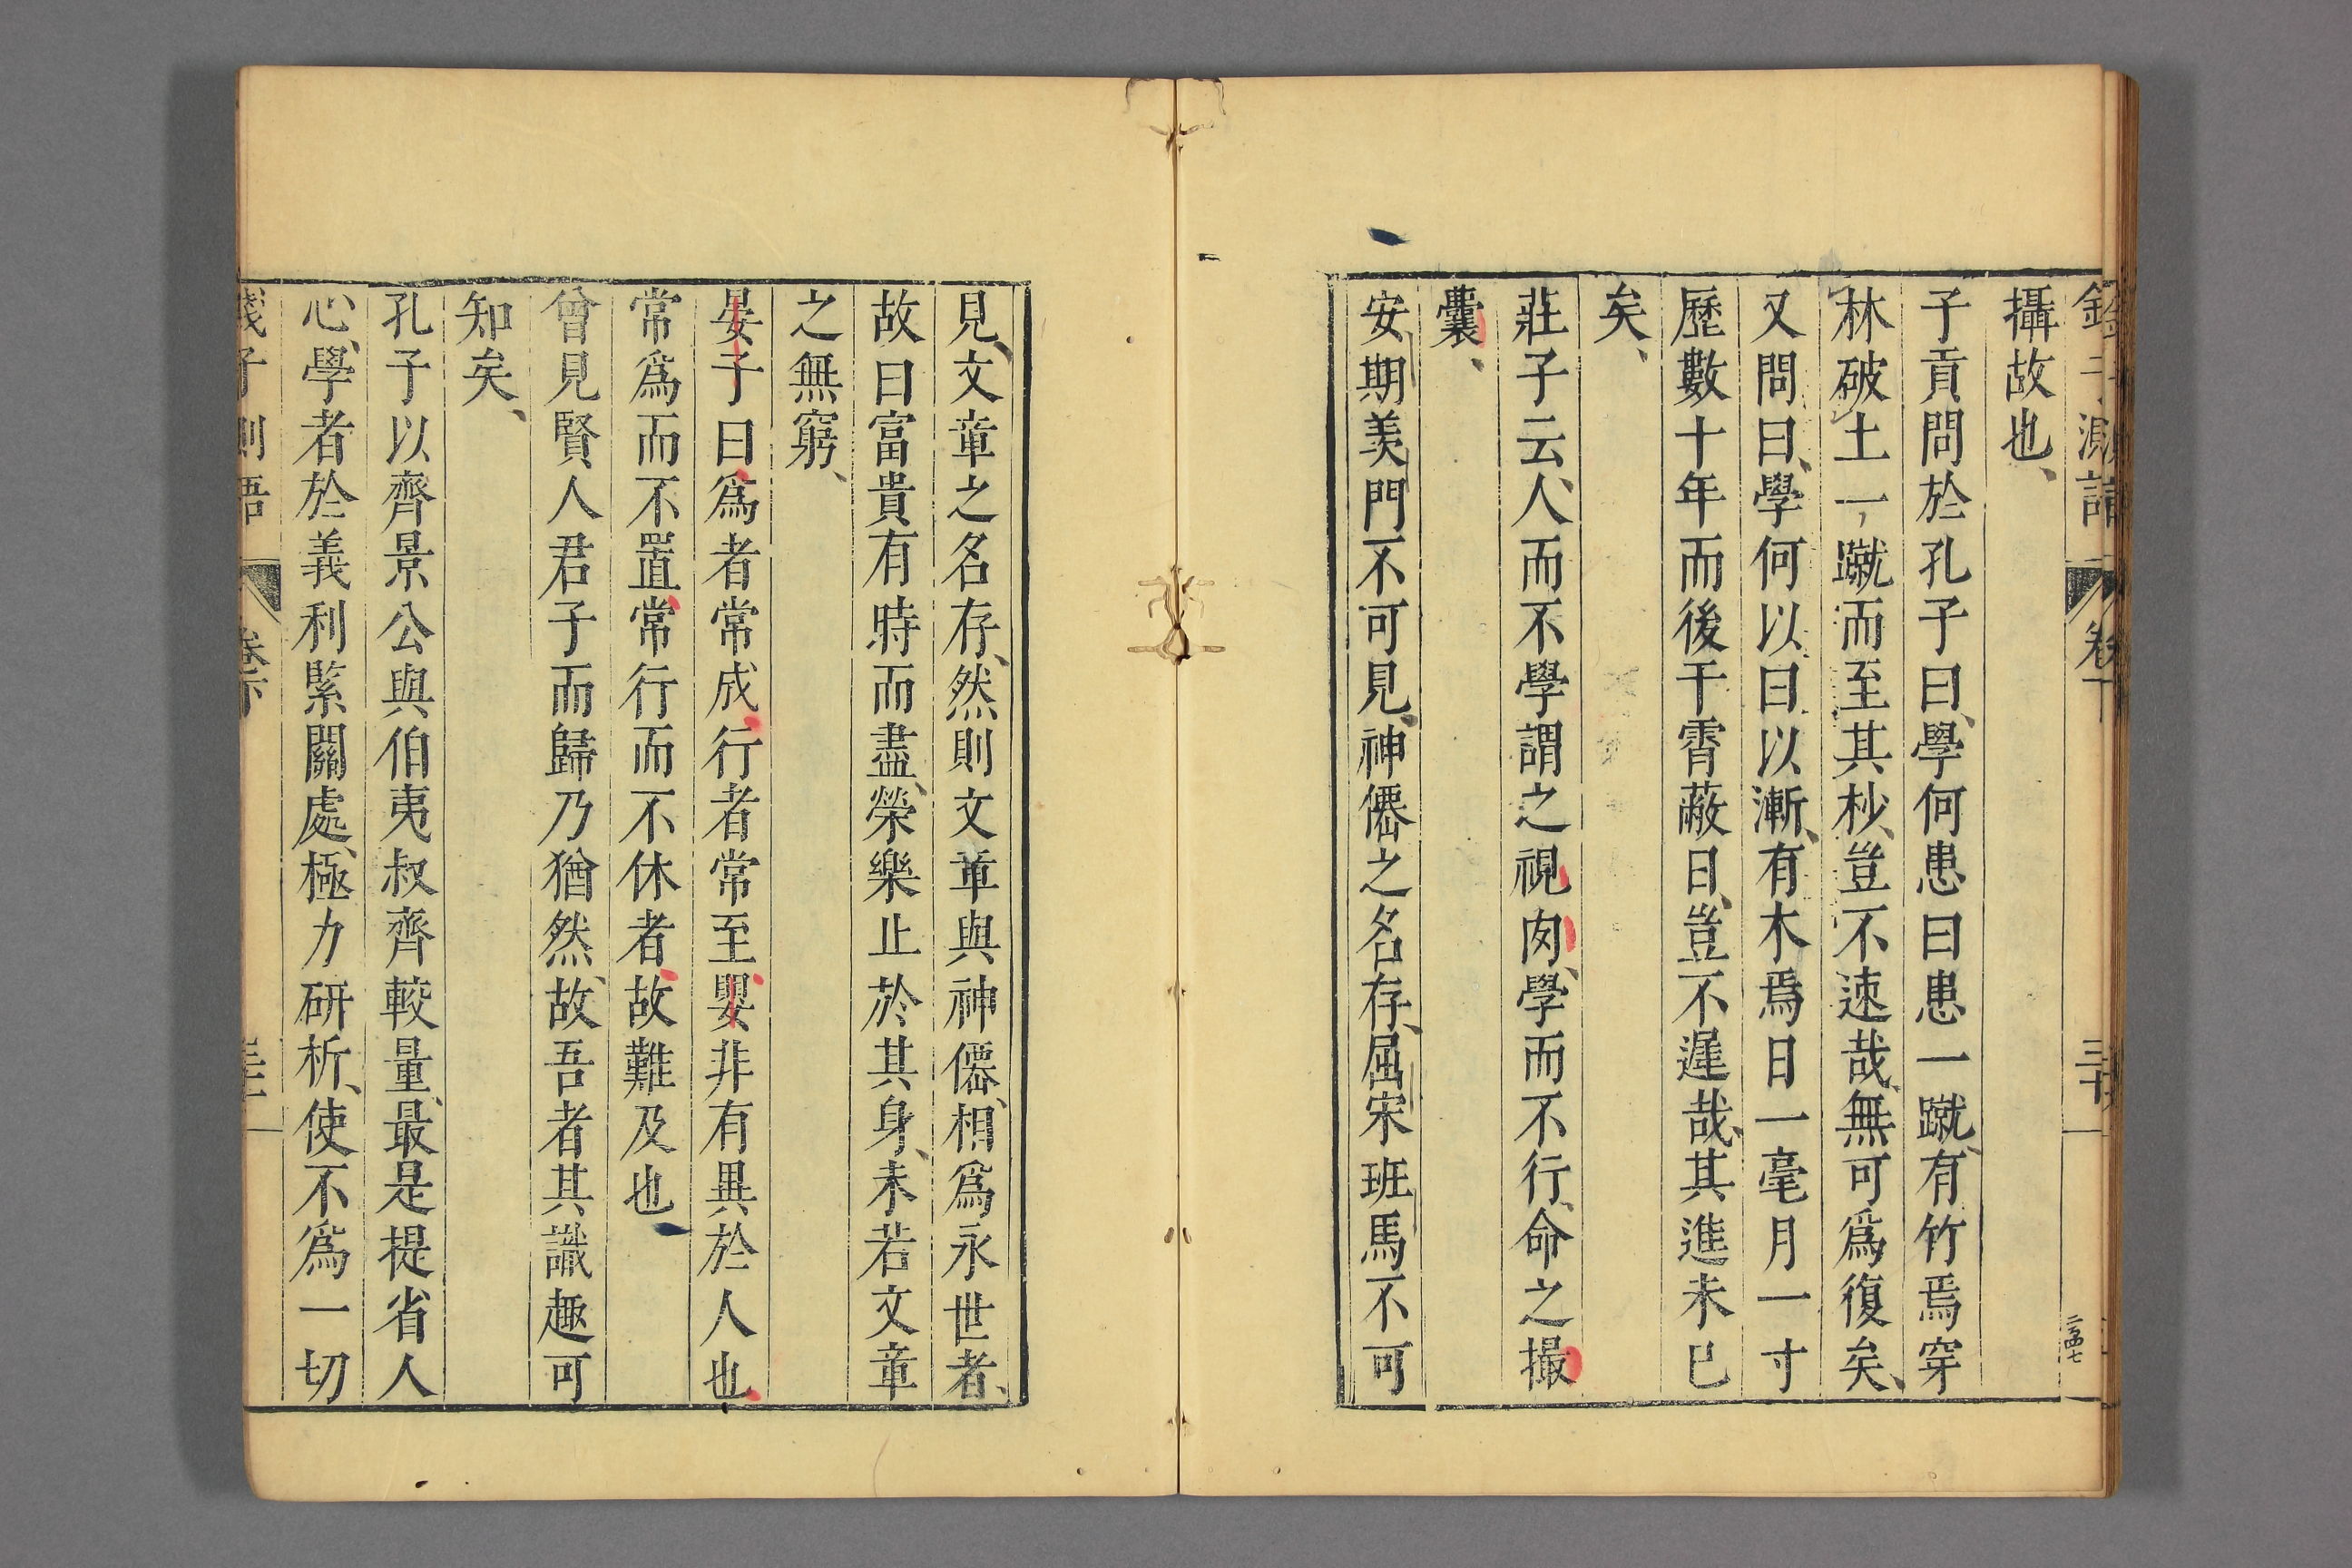 攝故也、
子貢問於孔子曰、學何患曰患一蹴、有竹焉穿
林破土一蹴而至其杪、豈不速哉、無可爲復矣、
又問曰、學何以曰以漸、有木焉日一毫月一寸
歷數十年而後干霄蔽日、豈不遲哉、其進未已
矣、
莊子云、人而不學謂之視肉、學而不行、命之撮
囊、
安期羨門不可見、神僊之名存、屈宋班馬不可
見、文章之名存、然則文章與神僊、相爲永世者、
故曰富貴有時而盡、榮樂止於其身、未若文章
之無窮、
晏子曰爲者常成、行者常至嬰非有異於人也
常爲而不置常行而不休者、故難及也
曾見賢人君子而歸乃猶然、故吾者其識趣可
知矣、
孔子以齊景公與伯夷叔齊較量、最是提省人
心、學者於義利緊關處、極力研析、使不爲一切
錢子測語 卷下